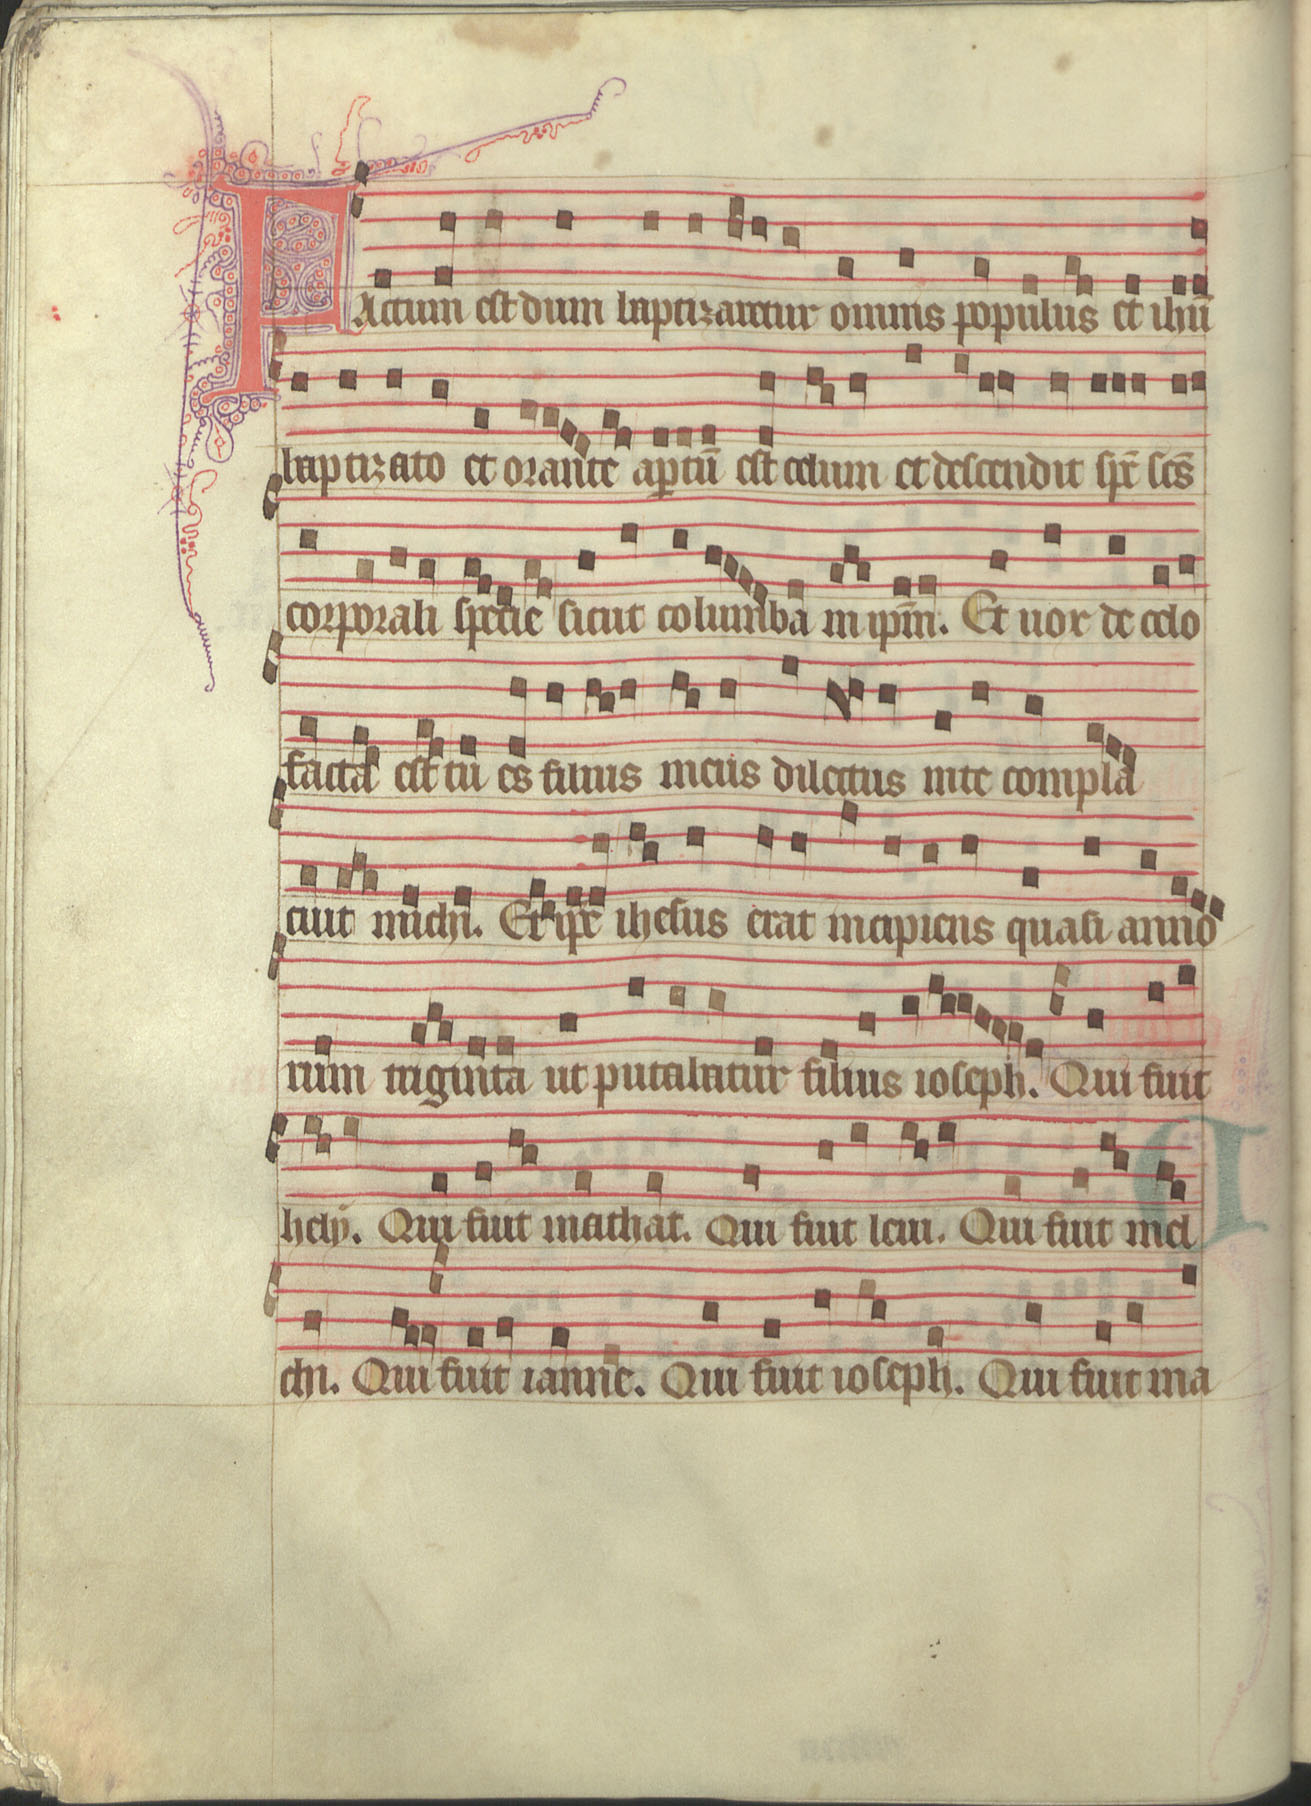 FActum est dum baptizaretur omnis populus et ihū
baptizato et orante aꝑtū est celum et descendit spē scēs
corporali specie sicut columba in ipm̄. Et uox de celo
facta est tu es filius meus dilectus in te compla
cuit michi. Et ipē ihesus erat incipiens quasi anno
rum triginta ut putabatur filius ioseph. Qui fuit
hely. Qui fuit mathat. Qui fuit leui. Qui fuit mel
chi. Qui fuit ianne. Qui fuit ioseph. Qui fuit ma